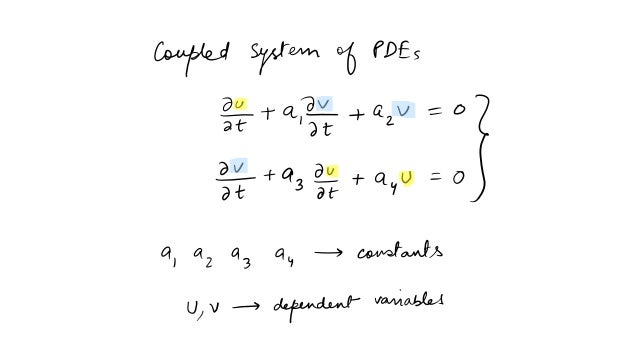 Coupled system of PDEs
∂u/∂t + a₁ ∂v/∂t + a₂ v = 0
∂v/∂t + a₃ ∂u/∂t + a₄ u = 0
a₁ a₂ a₃ a₄ → constants
u, v → dependent variables